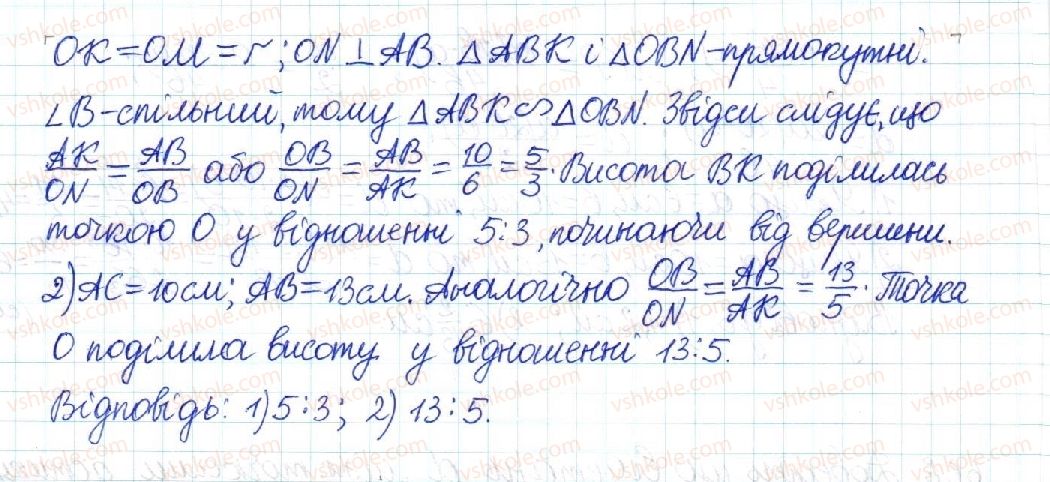 OK=OM=r; ON⊥AB. △ABK і △OBN-прямокутні.
∠B-спільний, тому △ABK∽△OBN. Звідси слідує, що
AK/ON = AB/OB або OB/ON = AB/AK = 10/6 = 5/3. Висота BK поділилась
точкою O у відношенні 5:3, починаючи від вершини.
2) AC=10см; AB=13см. Аналогічно OB/ON = AB/AK = 13/5. Точка
O поділила висоту у відношенні 13:5.
Відповідь: 1) 5:3; 2) 13:5.